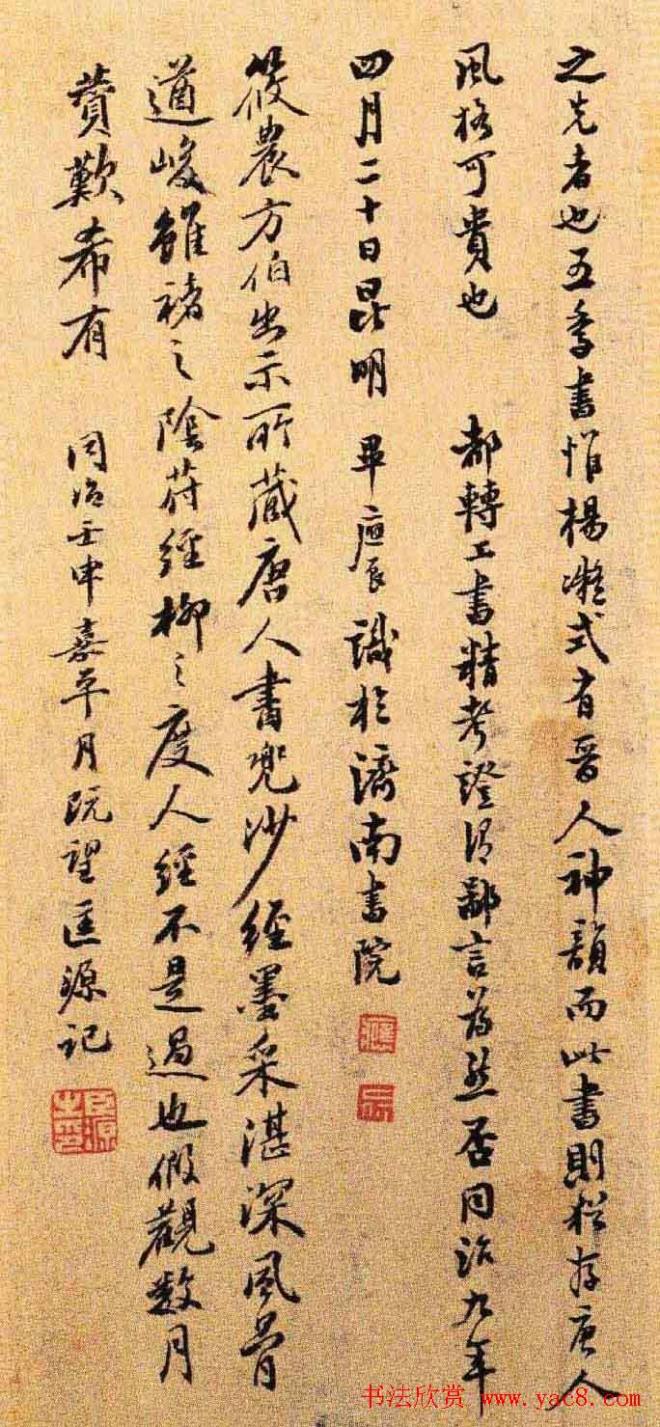 之先者也五季書惟楊凝式有晉人神韻而此書則猶存唐人
風格可貴也 都轉工書精考證得鄙言為然否同治九年
四月二十日昆明 畢應辰識於濟南書院
應
辰
筱農方伯出示所藏唐人書兜沙經墨采湛深風骨
遒峻雖褚之陰符經柳之度人經不是過也假觀數月
贊歎希有 同治壬申嘉平月既望匡源記
匡源之
书法欣赏 www.yac8.com